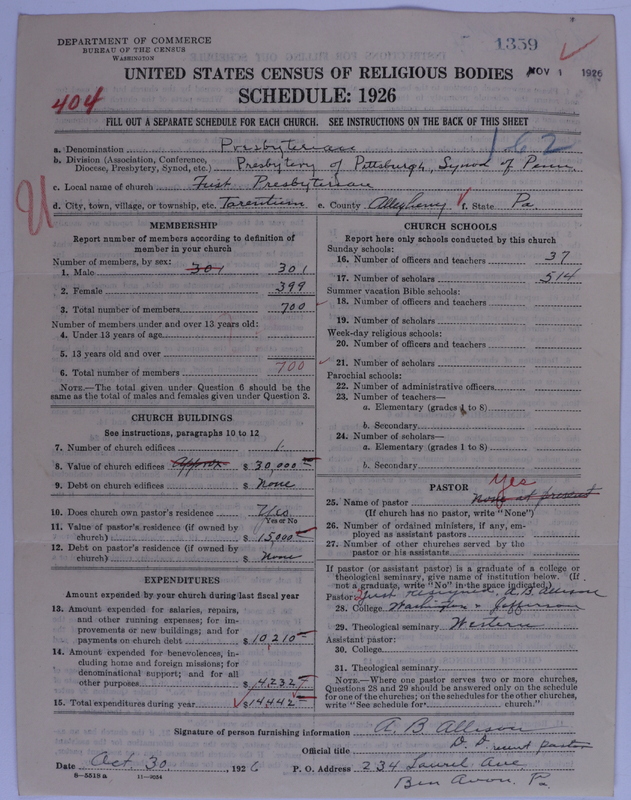 DEPARTMENT OF COMMERCE
BUREAU OF THE CENSUS
WASHINGTON
1359
UNITED STATES CENSUS OF RELIGIOUS BODIES
NOV 1 1926
404
SCHEDULE: 1926
FILL OUT A SEPARATE SCHEDULE FOR EACH CHURCH. SEE INSTRUCTIONS ON THE BACK OF THIS SHEET
a. Denomination Presbyterian 162
b. Division (Association, Conference, Diocese, Presbytery, Synod, etc.) Presbytery of Pittsburgh, Synod of Penn
c. Local name of church First Presbyterian
d. City, town, village, or township, etc. Tarentum e. County Allegheny f. State Pa.
MEMBERSHIP
Report number of members according to definition of
member in your church
Number of members, by sex:
1. Male 301 301
2. Female 399
3. Total number of members 700
Number of members under and over 13 years old:
4. Under 13 years of age
5. 13 years old and over
6. Total number of members 700
NOTE.—The total given under Question 6 should be the
same as the total of males and females given under Question 3.
CHURCH BUILDINGS
See instructions, paragraphs 10 to 12
7. Number of church edifices 1
8. Value of church edifices Approx $ 30,000
9. Debt on church edifices $ None
10. Does church own pastor's residence Yes
Yes or No
11. Value of pastor's residence (if owned by
church) $ 15,000
12. Debt on pastor's residence (if owned by
church) $ None
EXPENDITURES
Amount expended by your church during last fiscal year
13. Amount expended for salaries, repairs,
and other running expenses; for im-
provements or new buildings; and for
payments on church debt $ 10,210
14. Amount expended for benevolences, in-
cluding home and foreign missions; for
denominational support; and for all
other purposes $ 4,232
15. Total expenditures during year $ 14,442
CHURCH SCHOOLS
Report here only schools conducted by this church
Sunday schools:
16. Number of officers and teachers 37
17. Number of scholars 514
Summer vacation Bible schools:
18. Number of officers and teachers
19. Number of scholars
Week-day religious schools:
20. Number of officers and teachers
21. Number of scholars
Parochial schools:
22. Number of administrative officers
23. Number of teachers—
a. Elementary (grades 1 to 8)
b. Secondary
24. Number of scholars—
a. Elementary (grades 1 to 8)
b. Secondary
PASTOR
Yes
25. Name of pastor None at present
(If church has no pastor, write "None")
26. Number of ordained ministers, if any, em-
ployed as assistant pastors
27. Number of other churches served by the
pastor or his assistants
If pastor (or assistant pastor) is a graduate of a college or
theological seminary, give name of institution below. (If
not a graduate, write "No" in the space indicated.)
Pastor: Just resigned. A B Allison
28. College Washington & Jefferson
29. Theological seminary Western
Assistant pastor:
30. College
31. Theological seminary
NOTE.—Where one pastor serves two or more churches,
Questions 28 and 29 should be answered only on the schedule
for one of the churches; on the schedules for the other churches,
write "See schedule for church."
Signature of person furnishing information A. B. Allison
Official title D. D. pastor
Date Oct. 30, 1926 P. O. Address 234 Laurel Ave
8—5518 a 11—9024
Ben Avon. Pa.